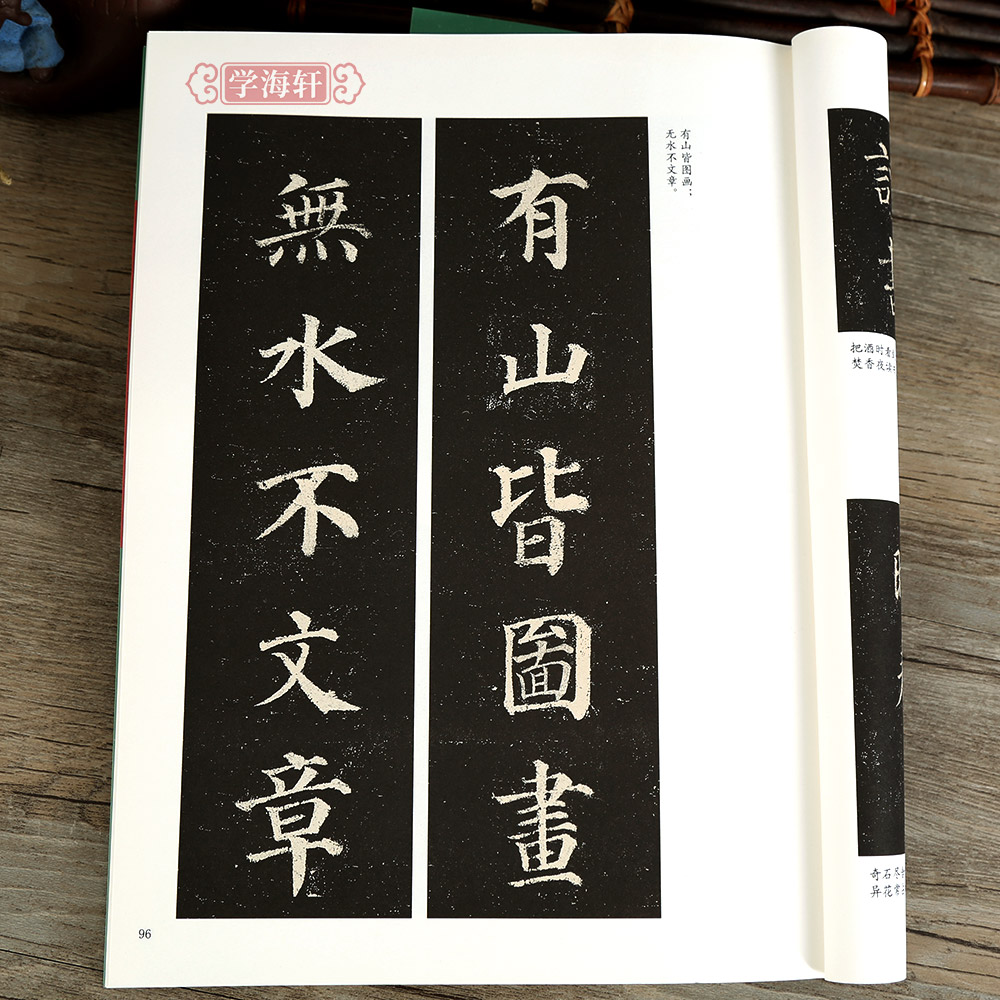 学海轩
有山皆图画；
无水不文章。
有山皆圖畫
無水不文章
96
把酒时看
焚香夜
奇石尽
异花常